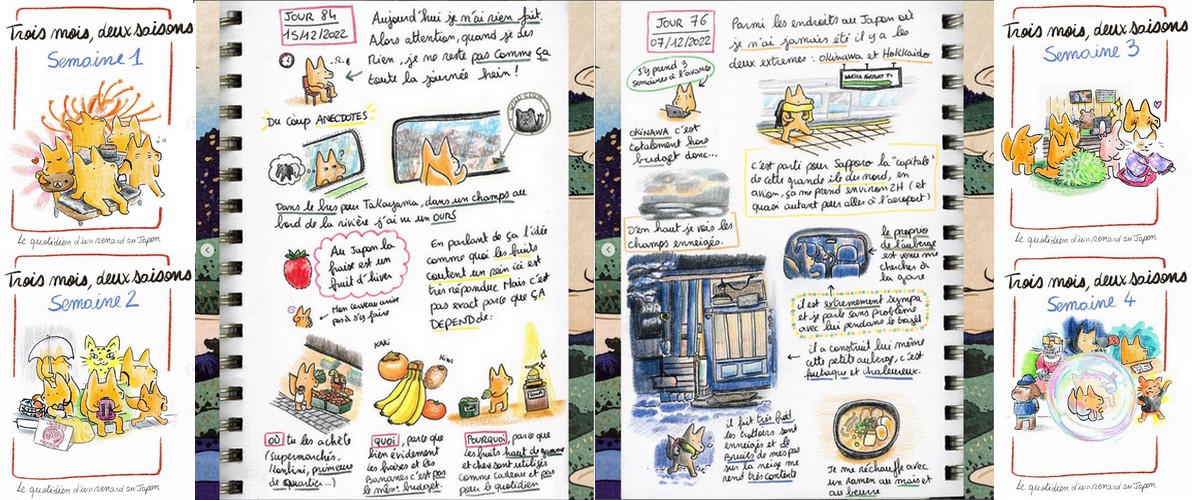 Trois mois, deux saisons
Semaine 1
Le quotidien d'un renard au Japon
Trois mois, deux saisons
Semaine 2
Le quotidien d'un renard au Japon
JOUR 84
15/12/2022
Aujourd'hui je n'ai rien fait.
Alors attention, quand je dis
Rien, je ne reste pas comme ça
toute la journée hein !
Du coup ANECDOTES
Dans le bus pour Takayama, dans un champs au
bord de la rivière j'ai vu un OURS
Au Japon la
fraise est un
fruit d'hiver
← Mon cerveau arrive
pas à s'y faire
En parlant de ça l'idée
comme quoi les fruits
coutent un rein ici est
très répandue. Mais c'est
pas exact parce que ÇA
DEPEND de :
KAKI
KIWI
OÙ tu les achète
(supermarchés,
Konbini, primeurs
de quartier...)
QUOI, parce que
bien évidement
les fraises et les
Bananes c'est pas
le même budget.
POURQUOI, parce que
les fruits haut de gamme
et cher sont utilisés
comme cadeau et pas
pour le quotidien
JOUR 76
07/12/2022
Parmi les endroits au Japon où
je n'ai jamais été il y a les
deux extremes : Okinawa et Hokkaido
S'y prend 3
semaines à l'avance
NARITA AIRPORT T1
OKINAWA c'est
totalement hors
budget donc...
c'est parti pour Sapporo la "capitale"
de cette grande île du nord, en
avion, ça me prend environ 2H (et
quasi autant pour aller à l'aeroport)
D'en haut je vois les
champs enneigés.
le proprio
de l'auberge
est venu me
chercher à
la gare
il est extremement sympa
et je parle sans problème
avec lui pendant le trajet
← il a construit lui même
cette petite auberge, c'est
rustique et chaleureux.
il fait très froid
les trottoirs sont
enneigés et le
Bruits de mes pas
sur la neige me
rend très contente
Je me réchauffe avec
un ramen au maïs et
au beurre
Trois mois, deux saisons
Semaine 3
Le quotidien d'un renard au Japon
Trois mois, deux saisons
Semaine 4
Le quotidien d'un renard au Japon